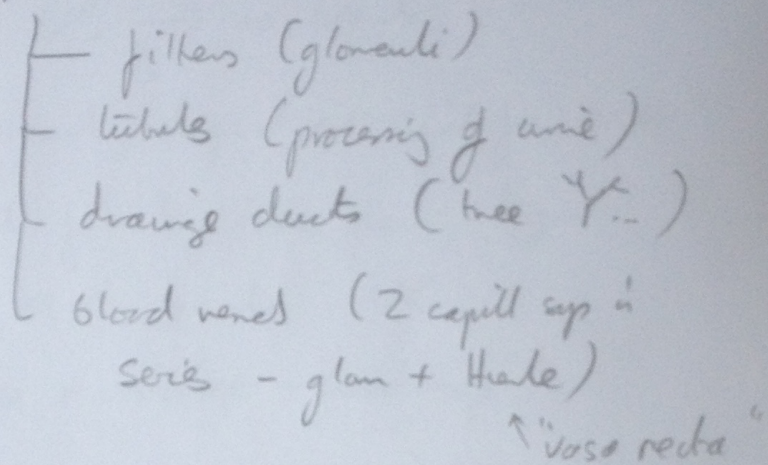 filters (glomeruli)
tubules (processing of urine)
drainage ducts (tree ...)
blood vessels (2 capill sys in
series - glom + Henle)
"vasa recta"